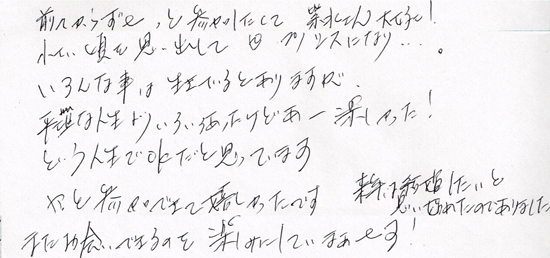 前からずーっと参加したくて
小さい頃を思い出して プリンスになり…。
いろんな事は生きているとありますが、
平凡な人生よりいろいろあったけどあー楽しかった!
という人生でOKだと思っています
やっと参加できて嬉しかったです
したいと
思いながれたのでありました
またお会いできるのを楽しみにしていまぁーす!